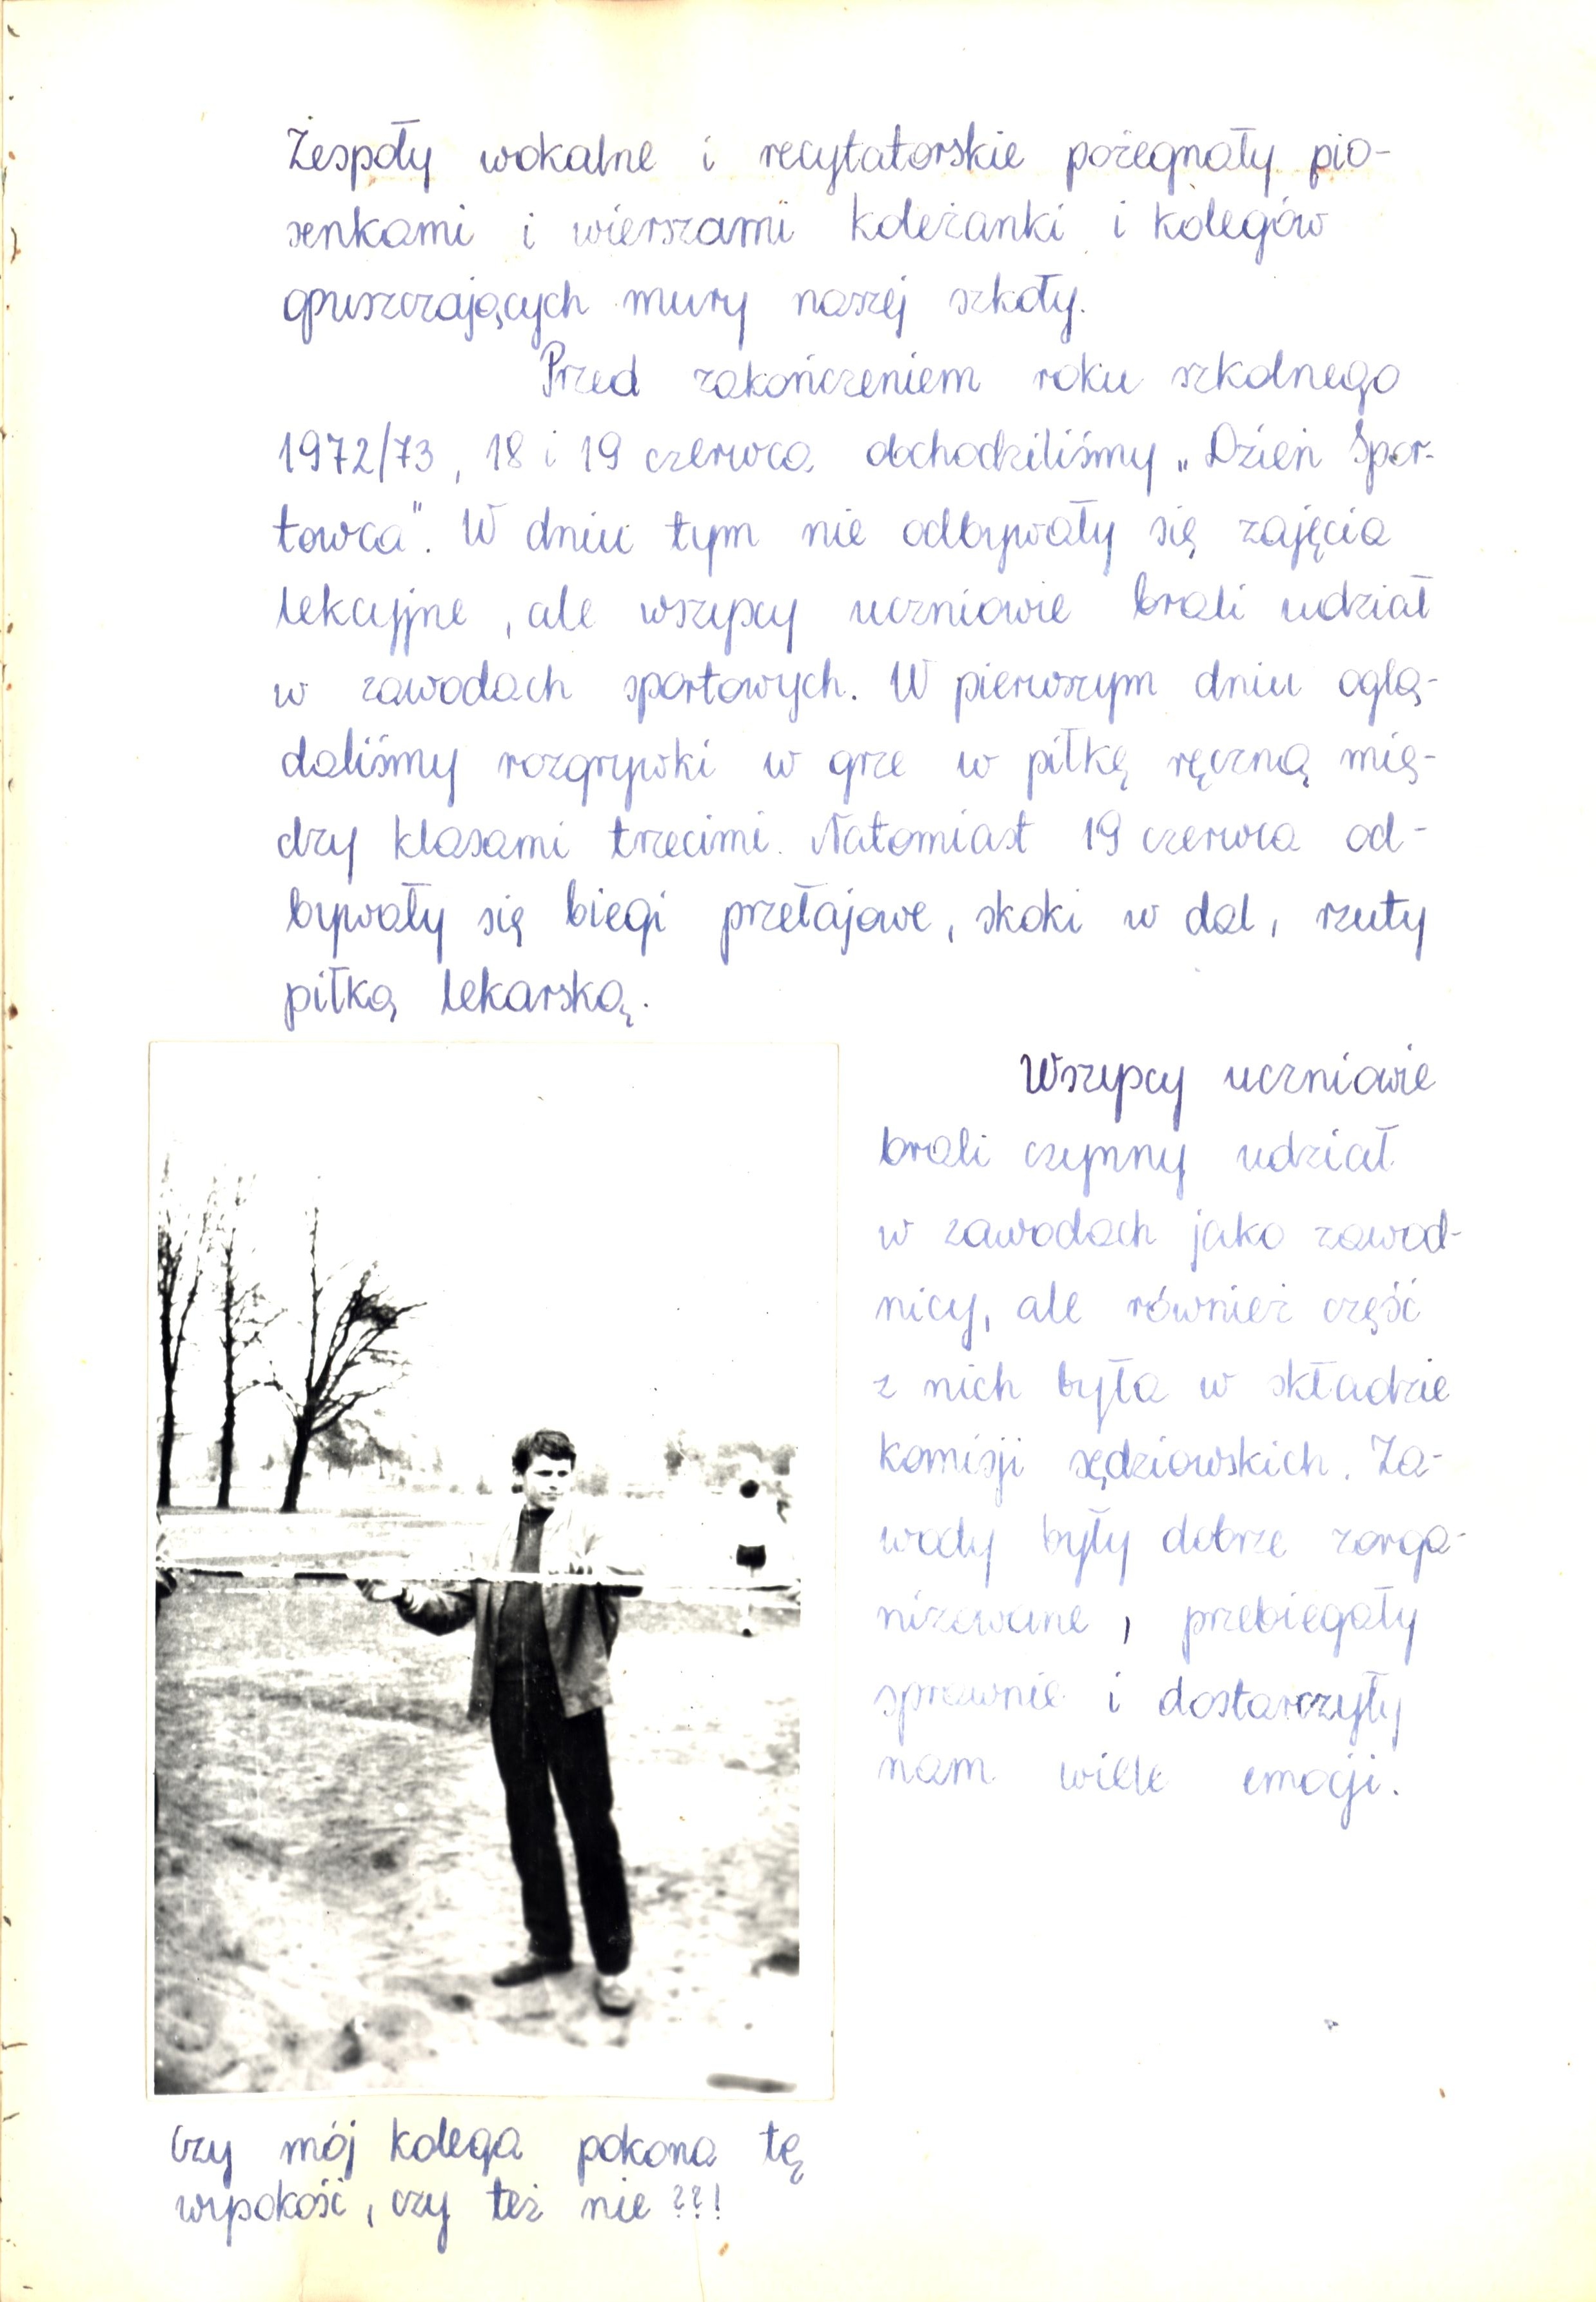 Zespoły wokalne i recytatorskie pożegnały pio-
senkami i wierszami koleżanki i kolegów
opuszczających mury naszej szkoły.
Przed zakończeniem roku szkolnego
1972/73, 18 i 19 czerwca obchodziliśmy „Dzień Spor-
towca". W dniu tym nie odbywały się zajęcia
lekcyjne, ale wszyscy uczniowie brali udział
w zawodach sportowych. W pierwszym dniu oglą-
daliśmy rozgrywki w grze w piłkę ręczną mię-
dzy klasami trzecimi. Natomiast 19 czerwca od-
bywały się biegi przełajowe, skoki w dal, rzuty
piłką lekarską.
Wszyscy uczniowie
brali czynny udział
w zawodach jako zawod-
nicy, ale również część
z nich była w składzie
komisji sędziowskich. Za-
wody były dobrze zorga-
nizowane, przebiegały
sprawnie i dostarczyły
nam wiele emocji.
Czy mój kolega pokona tę
wysokość, czy też nie??!